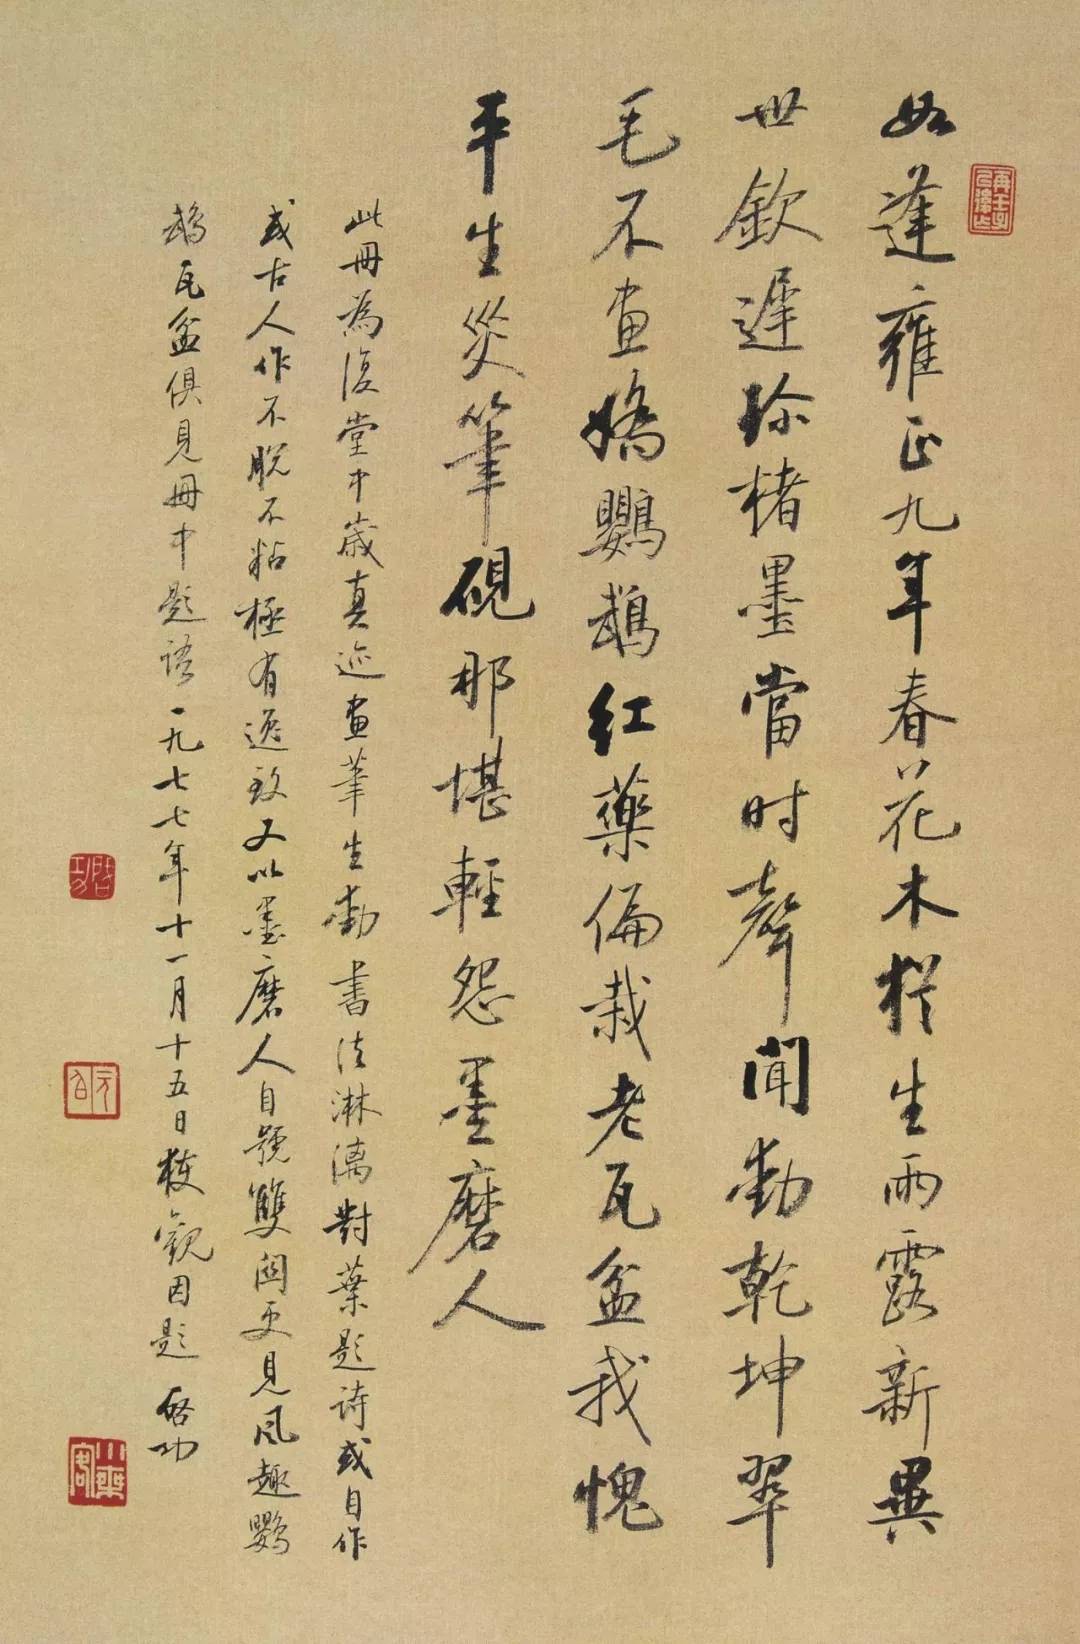 如逢雍正九年春花木猶生雨露新異
世欽遲珎楮墨當时聲聞動乾坤翠
毛不畫嬌鸚鵡紅藥偏栽老瓦盆我愧
平生災筆硯那堪輕怨墨磨人
此冊為復堂中歲真迹畫筆生動書法淋漓對葉題詩或自作
或古人作不脫不粘極有逸致又以墨磨人自號雙關更見風趣鸚
鵡瓦盆俱見冊中題語一九七七年十一月十五日獲觀因題 啓功
啟功
元白